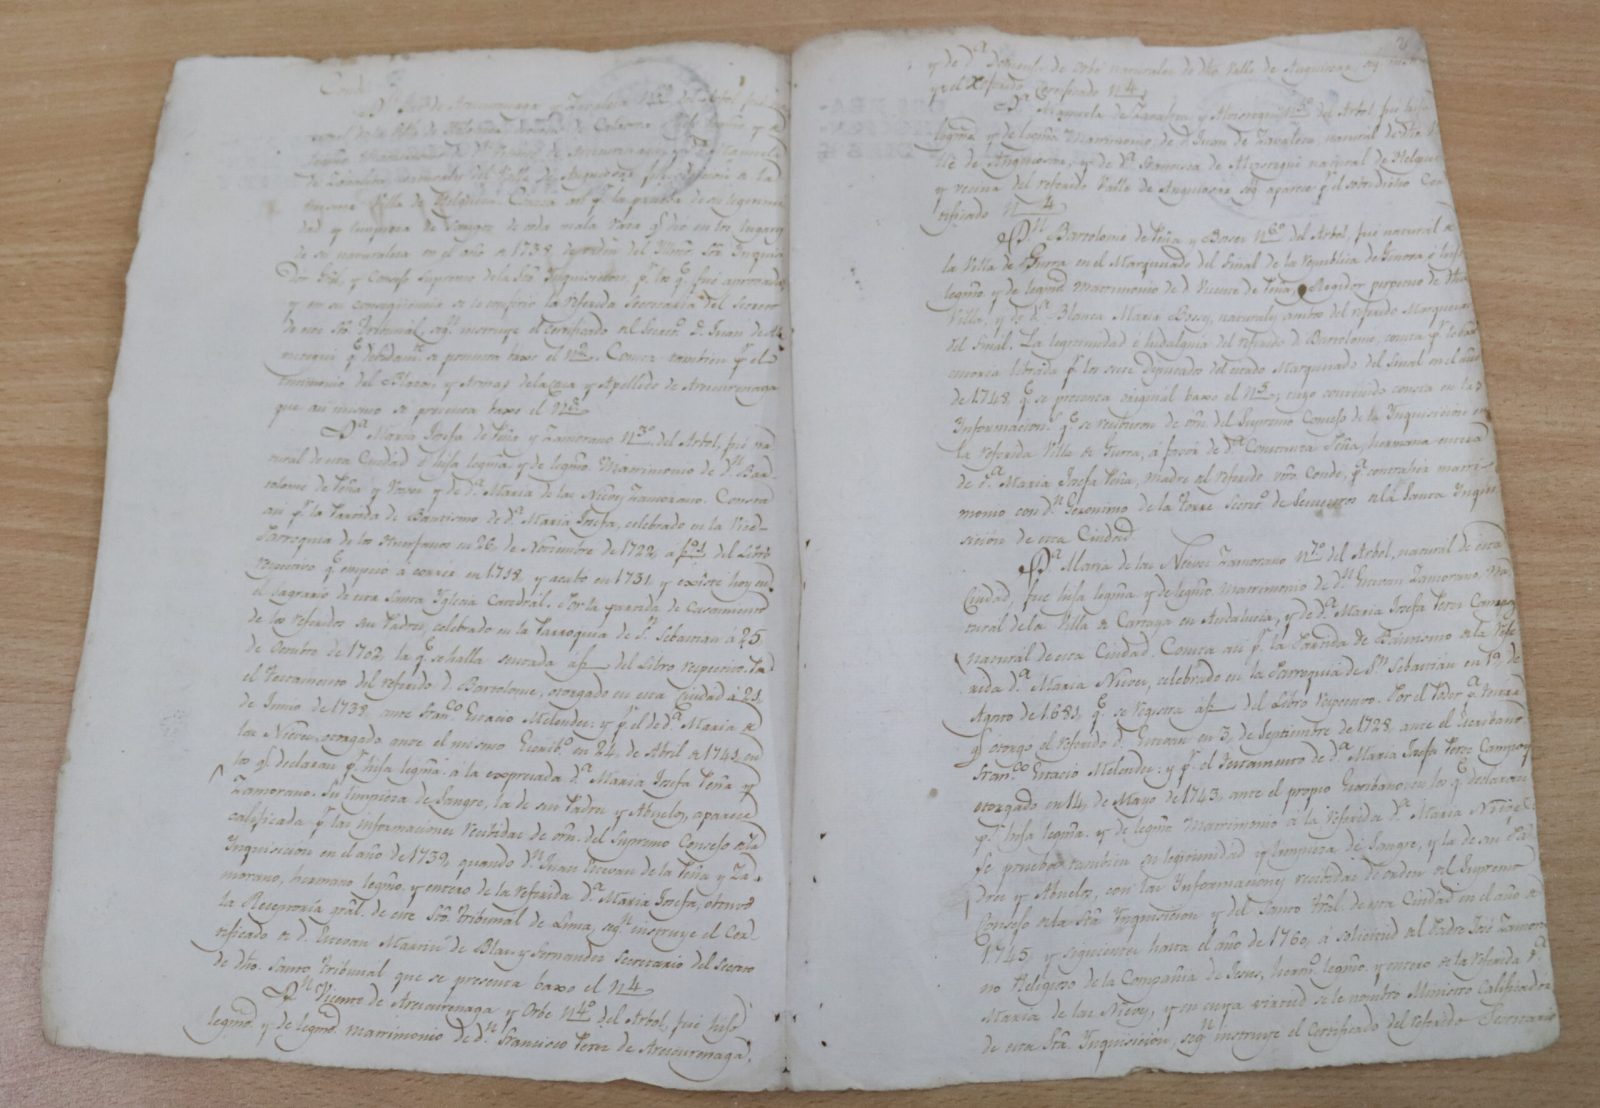 Conde
Dn Josè de Arescurenaga y Zavaleta N2º del Arbol, fue
de Zavaleta, naturales del Valle de Anguiozar
misma Villa de Helgueta. Consta asi pr la prueba de su legitimi-
dad y limpieza de Sangre de toda mala raza qe dió en los lugares
de su naturaleza en el año de 1738 de orden del Illmo. Sor Inquisi
dor Gral, y Consejo Supremo de la Sta Inquisicion pr los qe fue aprovada
y en su consequencia se le confirio la referida Secretaria del Secreto
de este Sto Tribunal, segn instruye el Certificado del Secreto D. Juan de
qe debidamte se presenta baxo el N2. Consta tambien pr el
testimonio del Blason y Armas de la Casa y Apellido de Arescurenaga
que asi mismo se presenta baxo el N3.
Da Maria Josefa de Peña y Zamorano N3º del Arbol, fué na-
tural de esta Ciudad è hija legma y de legmo Matrimonio de Dn Bar-
tolomé de Peña y Vosei y de Da Maria de las Nieves Zamorano. Consta
asi pr la Partida de Bautismo de Da Maria Josefa, celebrado en la Vice-
Parroquia de los Huerfanos en 26, de Noviembre de 1722, a fo1 del Libro
respectivo qe empezó à correr en 1718, y acabó en 1731 y existe hoy en
el Sagrario de esta Santa Iglesia Catedral. Por la partida de Casamiento
de los referidos sus Padres, celebrado en la Parroquia de Sn Sebastian á 25
de Octubre de 1702, la qe se halla sentada áf del Libro respectivo. Por
el Testamento del referido D. Bartolome, otorgado en esta Ciudad á 21,
de Junio de 1739, ante Franco Estacio Melendez; y pr el de Da Maria de
las Nieves, otorgado ante el mismo Escribo en 24, de Abril de 1741, en
los qs declaran pr hija legma à la expresada Da Maria Josefa Peña y
Zamorano. Su limpieza de Sangre, la de sus Padres y Abuelos, aparece
calificada pr las informaciones recibidas de orn. del Supremo Consejo de la
Inquisicion en el año de 1739, quando Dn Juan Estevan de la Peña y Za-
morano, hermano legmo y entero de la referida Da Maria Josefa, obtuvo
la Receptoría gral. de este Sto Tribunal de Lima, segn instruye el Cer-
tificado de D. Estevan Maurin de Blas y Fernandez Secretario del Secreto
de dho. Santo Tribunal que se presenta baxo el N4
Dn Vicente de Arescurenaga y Orbe N4º del Arbol, fue hijo
legmo y de legmo matrimonio de Dn Francisco Perez de Arescurenaga
y de Da de Orbe naturales de dho. Valle de Anguiozar
y el referido Certificado N4
Da Manuela de Zavaleta y Moisegui N5º del Arbol, fue hija
legma y de legmo Matrimonio, de D. Juan de Zavaleta, natural de dho Va
lle de Anguiozar, y de Da Francisca de Moisegui natural de Helgue
y vecina del referido Valle de Anguiozar segn aparece pr el sobredicho Cer
tificado N4
Dn Bartolomé de Peña y Bosei N6º del Arbol, fue natural de
la Villa de Gurra en el Marquesado del Final de la republica de Genova è hijo
legmo y de legmo matrimonio de D Vicente de Peña, Regidor perpetuo de dha
Villa, y de Da Blanca Maria Bosey, naturales ambos del referido Marquesado
del Final. La legitimidad è hidalguia del referido D. Bartolome, consta pr
librada pr los siete Diputados del estado Marquesado del Final en el año
de 1748 qe se presenta original baxo el N5, cuyo contenido consta en las
Informacions qe se recibieron de orn del Supremo Consejo de la Inquisicion en
la referida Villa de Gurra, à favor de Da Constanza Peña, hermana entera
de Da Maria Josefa Peña, madre del referido Conde, pa contraher matri-
monio con Dn Geronimo de la Torre Secreto de Sequestros de la Santa Inqui-
sicion de esta Ciudad.
Da Maria de las Nieves Zamorano N7º del Arbol, natural de esta
Ciudad, fue hija legma y de legmo Matrimonio de Dn Estevan Zamorano, na-
tural de la Villa de Cartaya en Andalucia, y de Da Maria Josefa Perez Campos
natural de esta Ciudad. Consta asi pr la Partida de Bautismo de la refe
rida Da Maria Nieves, celebrado en la Parroquia de Sn Sebastián en 19, de
Agosto de 1681, qe se registra áf del Libro respectivo. Por el Poder pa testar
qe otorgó el referido Dn Estevan en 3, de Septiembre de 1728, ante el Escribano
Franco Estacio Melendez: y pr el Testamento de Da Maria Josefa Perez Campos
otorgado en 14, de Mayo de 1743, ante el propio Escribano en los qe declaran
pr hija legma y de legmo Matrimonio à la referida Da Maria Nieves.
Se prueba tambien su legitimidad y limpieza de Sangre, y la de sus Pa-
dres y Abuelos, con las Informaciones recibidas de orden del Supremo
Consejo de la Sta Inquisicion y del Santo Tral de esta Ciudad en el año de
1745, y siguientes hasta el año de 1760, à solicitud del Padre José Zamora
no Religioso de la Compañia de Jesus, hermo legmo y entero de la referida Da
Maria de las Nieves, y en cuya virtud se le nombró Ministro Calificador
de esta Sta Inquisicion, segn instruye el Certificado del referido Secretario